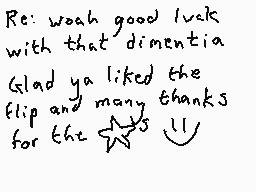 Re: woah good luck
with that dimentia
Glad ya liked the
flip and many thanks
for the ☆s